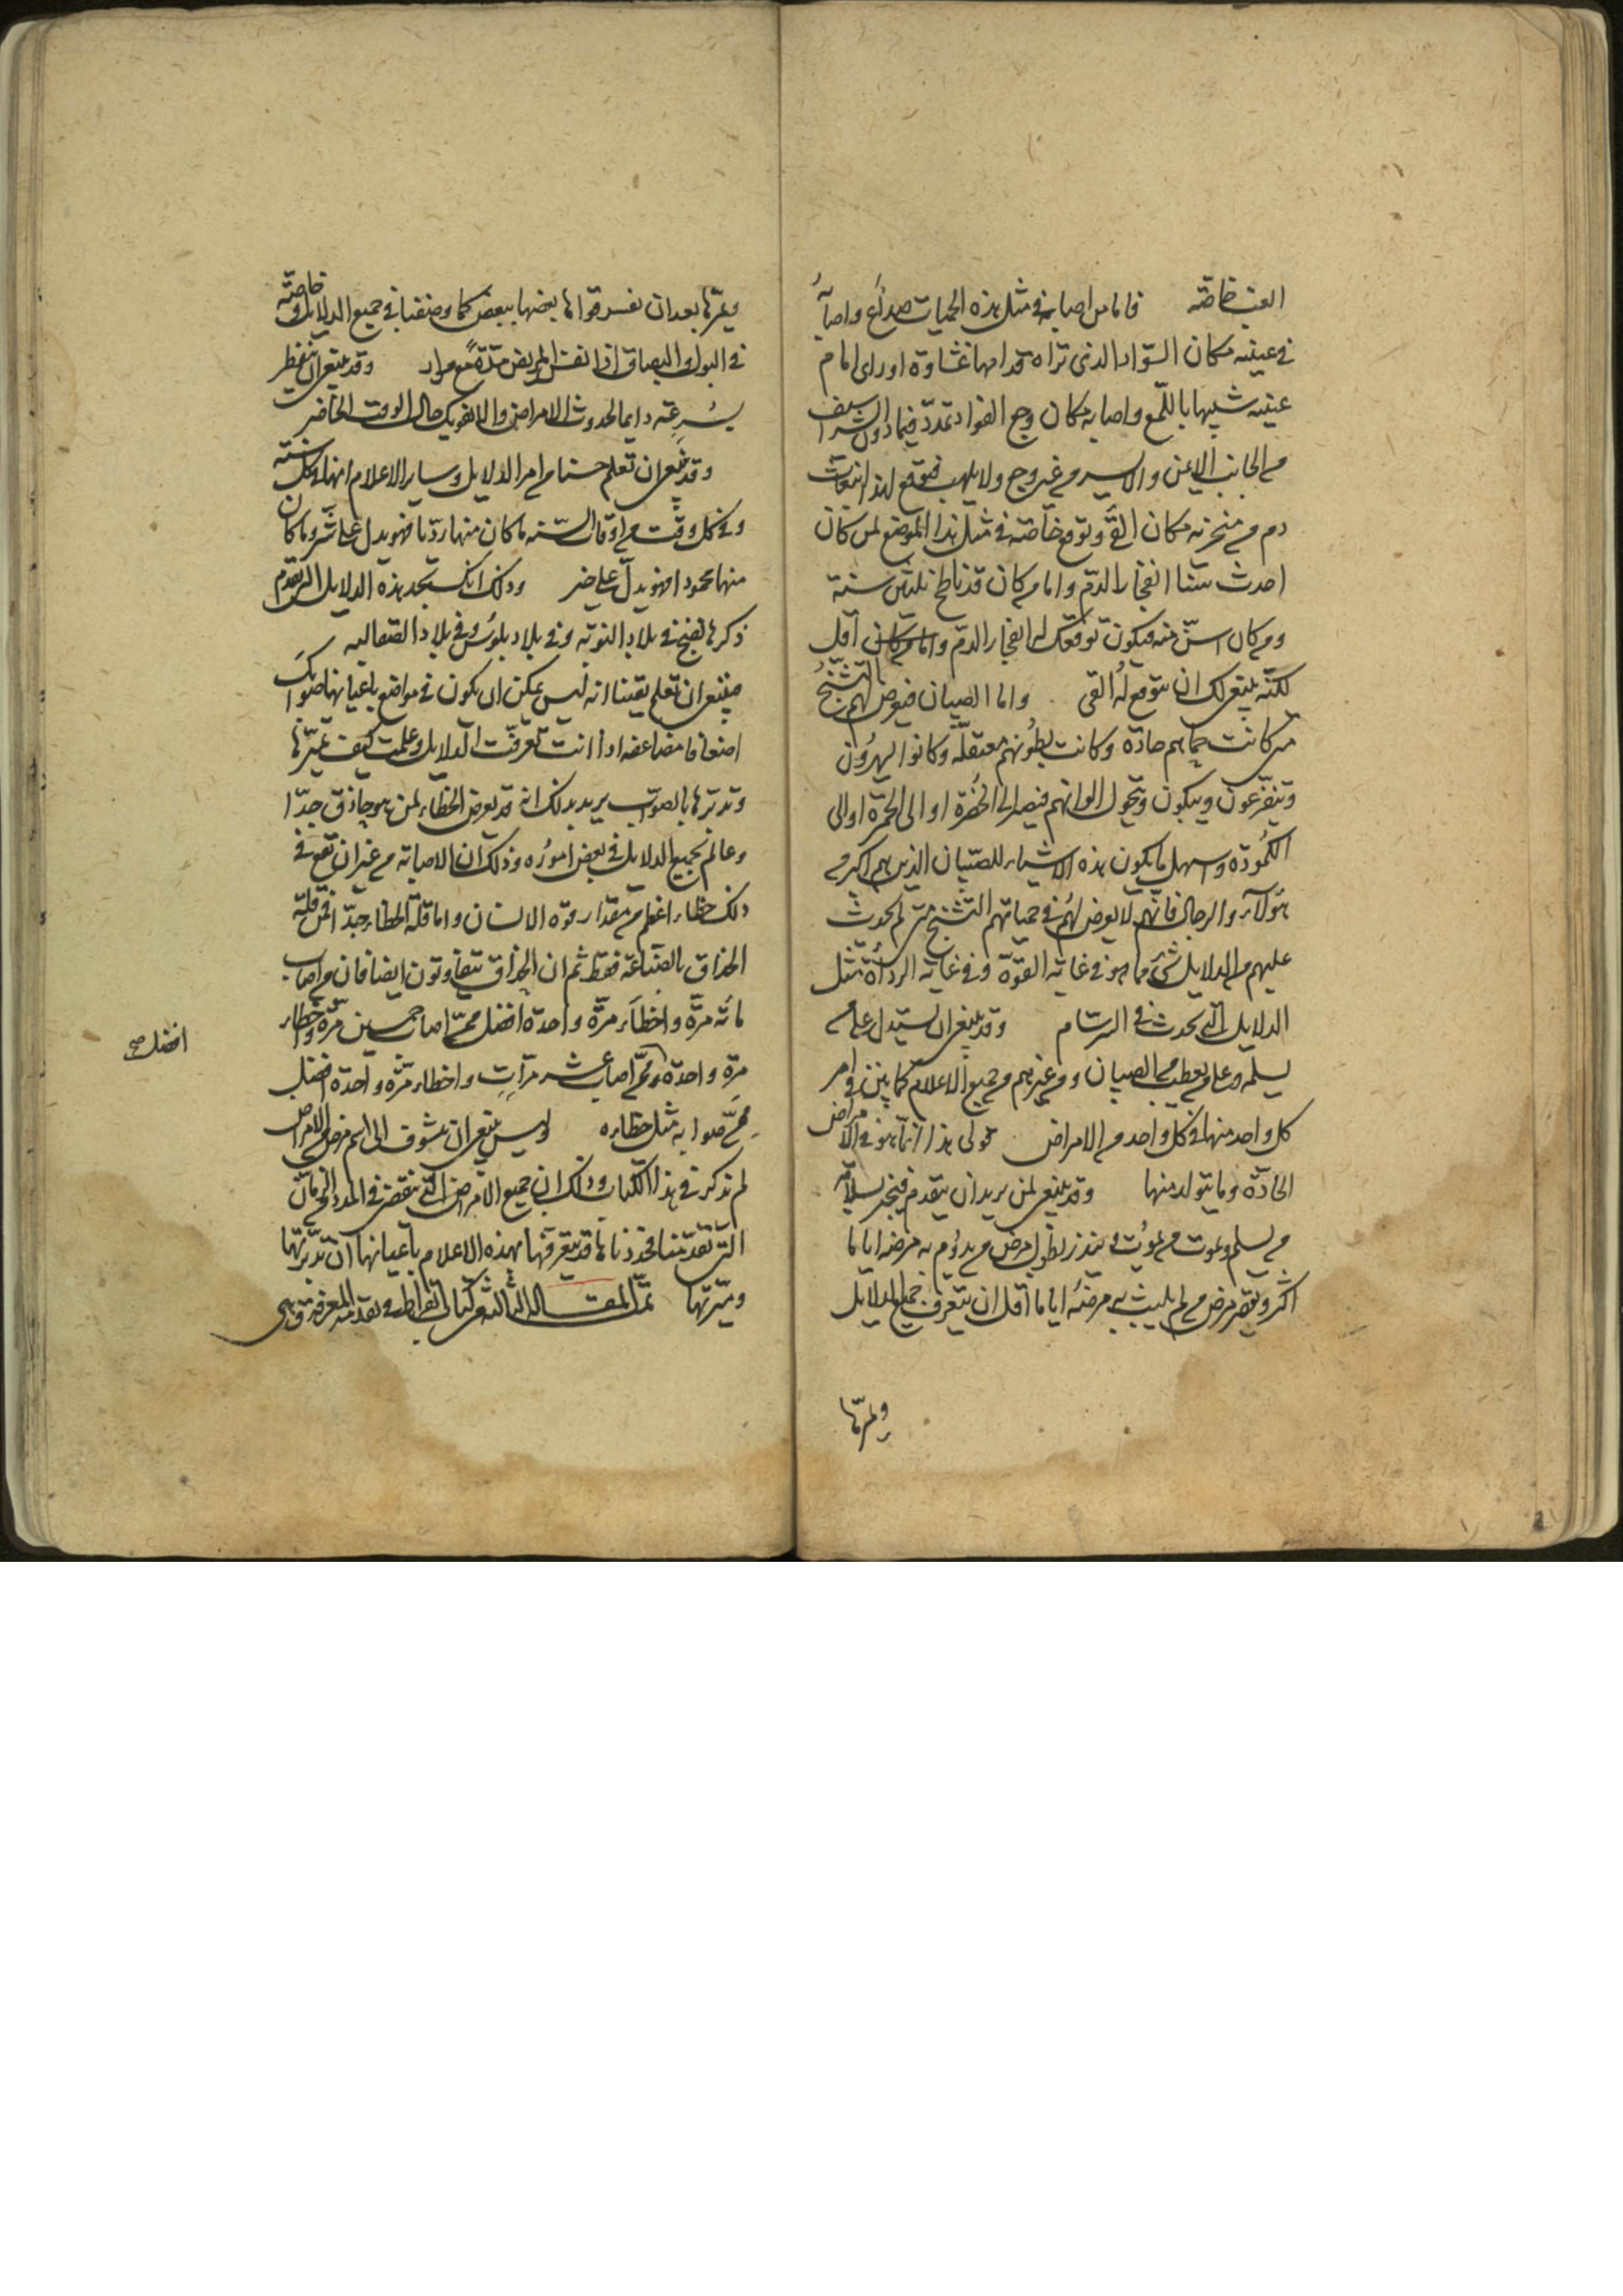 العنب خاصّة فاما من اصابه في مثل هذه الحميات صداع واصابه
في عينيه مكان السّواد الذي تراه قدامها غشاوة او راى امام
عينيه شبيها باللّمع واصابه مكان وجع الفؤاد تمدّد فيما دون الشراسيف
من الجانب الايمن والايسر من غير وجع ولا تلهب فتوقع لهذا انبعاث
دم من منخريه مكان القئ وتوقع خاصّة في مثل هذا الموضع لمن كان
احدث سنّا انفجار الدّم واما من كان قد ناطح ثلثين سنة
ومن كان اسنّ منه فيكون توقعك له انفجار الدّم اقل
لكنّه ينبغي لك ان تتوقع له القئ واما الصبيان فيعرض لهم التّشنّج
متى كانت حمّاهم حادّة وكانت بطونهم معتقلة وكانوا يسهرون
ويتفزّعون ويبكون وتحول الوانهم فيصير الى الخضرة او الى الحمرة او الى
الكمودة واسهل ما يكون هذه الاشياء للصّبيان الذين هم اكبر من
هؤلاء والرجال فانّهم لا يعرض لهم في حمياتهم التّشنّج متى لم يحدث
عليهم من الدلايل شئ مما هو في غاية القوّة وفي غاية الرداءة مثل
الدلايل التي يحدث في البرسام وقد ينبغي ان يستدل على من
يسلم وعلى من يعطب من الصبيان ومن غيرهم من جميع الاعلام كما بيّن في امر
كل واحد منها في كل واحد من الامراض قولى هذا انما هو في الامراض
الحادّة وما يتولد منها وقد ينبغي لمن يريد ان يتقدم فيخبر بسلامة
من يسلم وبموت من يموت وينذر بطول مرض من يدوم به مرضه اياما
اكثر وبقصر مرض من لم يلبث به مرضه اياما اقل ان يتعرف جميع الدلايل
ويميزها
ويميزها بعد ان تفسر قواها بعضها ببعض كما وصفنا في جميع الدلايل وخاصّة
في البول والبصاق اذا نفث المريض مدّة مع مرار وقد ينبغي ان تفطر
بسرعة دايما لحدوث الامراض ولا يفوتك حال الوقت الحاضر
وقد ينبغي ان تعلم حسنا من امر الدلايل وساير الاعلام انها في كل سنة
وفي كل وقت من اوقات السّنة ما كان منها رديّا فهو يدل على شر وما كان
منها محمودا فهو يدل على خير وذلك انك تجد هذه الدلايل التي تقدم
ذكرها تصح في بلاد النوبة وفي بلاد بلوس وفي بلاد الصقالبة
فينبغي ان تعلم يقينا انه ليس يمكن ان يكون في مواضع باعيانها صوابك
اضعافا مضاعفة اذا انت تعرفت الدلايل وعلمت كيف تميّزها
وتدبرها بالصوّاب يريد بذلك انه قد يعرض الخطاء لمن هو حاذق جدّا
وعالم بجميع الدلايل في بعض اموره وذلك ان الاصابة من غير ان تقع في
ذلك خطاء اعظم من مقدار قوة الانسان واما قلة الخطاء جدّا فمن قلّة
الحذاق بالصّناعة فقط ثم ان الحذاق يتفاوتون ايضا فان من اصاب
مائة مرّة واخطاء مرّة واحدة افضل ممّن اصاب خمسين مرّة واخطاء
مرّة واحدة وممّن اصاب عشر مرّات واخطاء مرّة واحدة افضل
ممّن صوابه مثل خطاءه وليس ينبغي ان تتشوف الى اسم مرض من الامراض
لم نذكر في هذا الكتاب وذلك ان جميع الامراض التي تنقضي في المدد والزمان
التي تقدمنا فحددناها قد تتعرفها بهذه الاعلام باعيانها ان تدبرتها
وميّزتها تمّت المقالة الثالثة من كتاب ابقراط في تقدمة المعرفة وهي
افضل صح